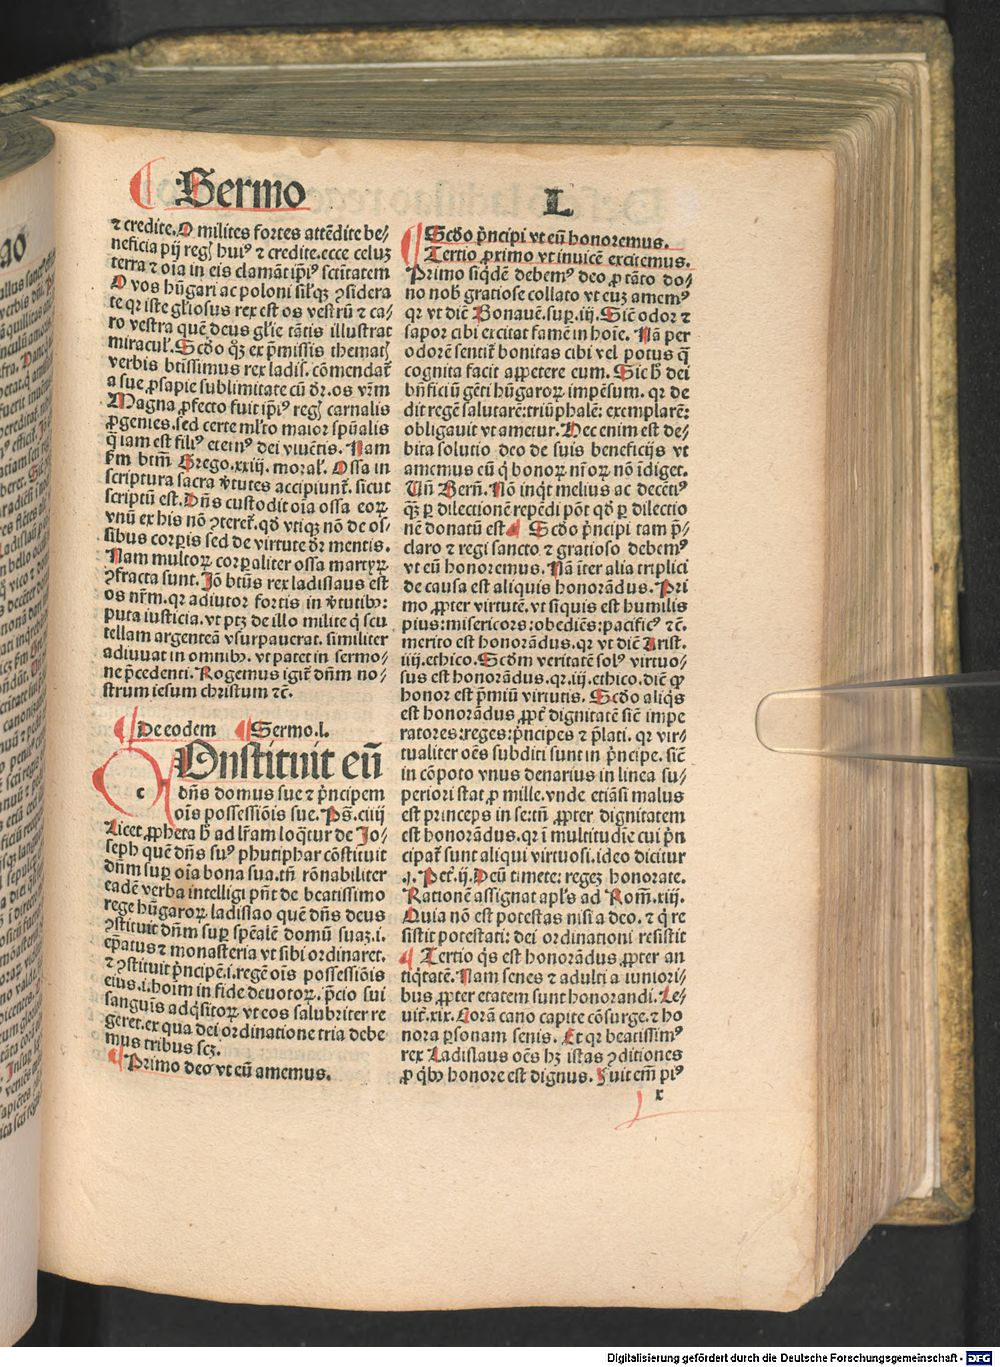 Sermo
L
⁊ credite. O milites fortes attẽdite be⸗
neficia pij regꝭ huiꝰ ⁊ credite. ecce celuꝫ
terra ⁊ oĩa in eis clamãt ip̃iꝰ scĩtatem
O vos hũgari ac poloni sil'qꝫ ꝯsidera
te qr iste gl'iosus rex est os vestrũ ⁊ ca⸗
ro vestra quẽ deus gl'ie tãtis illustrat
miracul'. Scđo qꝫ ex p̃missis thematꝭ
verbis btissimus rex ladis. cõmendat̃
a sue ꝓsapie sublimitate cũ dr̃. os vr̃m
Magna ꝓfecto fuit ip̃iꝰ regꝭ carnalis
ꝓgenies. sed certe ml'to maior spũalis
q̃ iam est filiꝰ eterniꝰ dei viuẽtis. Nam
ẜm btm̃ Grego. xxiij. moral'. Ossa in
scriptura sacra v̾tutes accipiunt̃. sicut
scriptũ est. Dñs custodit oĩa ossa eoꝝ
vnũ ex his nõ ꝯteret̃. qđ vtiqꝫ nõ de os⸗
sibus corꝑis sed de virtute dr̃ mentis.
Nam multoꝝ corꝑaliter ossa martyꝝ
ꝯfracta sunt. Jõ btũs rex ladislaus est
os nr̃m. qr adiutor fortis in v̾tutibꝫ:
puta iusticia. vt ptꝫ de illo milite q̃ scu
tellam argenteã vsurpauerat. similiter
adiuuat in omnibꝫ. vt patet in sermo⸗
ne p̃cedenti. Rogemus igit̃ dñm no⸗
strum iesum christum ⁊c̃.
De eodem Sermo. l.
Onstituit eũ
c
dñs domus sue ⁊ p̃ncipem
oĩs possessiõis sue. Ps̃. ciiij
Licet ꝓpheta h̾ ad lr̃am loq̃tur de Jo⸗
seph quẽ dñs suꝰ phutiphar cõstituit
dñm suꝑ oĩa bona sua. tñ rõnabiliter
eadẽ verba intelligi pñt de beatissimo
rege hũgaroꝝ ladislao quẽ dñs deus
ꝯstituit dñm suꝑ spẽalẽ domũ suaꝫ. i.
ep̃atus ⁊ monasteria vt sibi ordinaret.
⁊ ꝯstituit p̃ncipẽ. i. regẽ oĩs possessiõis
eius. i. hoim in fide deuotoꝝ. p̃cio sui
sanguĩs adq̃sitoꝝ vt eos salubriter re
geret. ex qua dei ordinatione tria debe
mus tribus scꝫ.
Primo deo vt eũ amemus.
Scđo p̃ncipi vt eũ honoremus.
Tertio ꝓximo vt inuicẽ excitemus.
Primo siqđẽ debemꝰ deo ꝓ tãto do⸗
no nob̃ gratiose collato vt euꝫ amemꝰ
qr vt diẽ Bonauẽ. suꝑ. iij. Siẽ odor ⁊
sapor cibi excitat famẽ in hoĩe. Nã per
odorẽ sentit̃ bonitas cibi vel potus q̃
cognita facit appetere eum. Sic h̾ dei
bñficiũ gẽti hũgaroꝝ impẽsum. qr de
dit regẽ salutarẽ: triũphalẽ: exemplarẽ:
obligauit vt ametur. Hec enim est de⸗
bita solutio deo de suis beneficijs vt
amemus eũ q̃ honoꝝ nr̃oꝝ nõ ĩdiget.
Vñ Bern̄. Nõ inq̃t melius ac decẽtiꝰ
qꝫ̃ ꝑ dilectionẽ repẽdi põt qđ ꝑ dilectio
nẽ donatũ est. Scđo p̃ncipi tam p̃⸗
claro ⁊ regi sancto ⁊ gratioso debemꝰ
vt eũ honoremus. Nã ĩter alia triplici
de causa est aliquis honorãdus. Pri
mo ꝓpter virtutẽ. vt siquis est humilis
pius: misericors: obediẽs: pacificꝰ ⁊c̃.
merito est honorãdus. qr vt diẽ Arist.
iiij. ethico. Scđm veritatẽ solꝰ virtuo⸗
sus est honorãdus. qr. iij. ethico. diẽ ꝙ
honor est p̃miũ virtutis. Scđo aliq̃s
est honorãdus ꝓpt̃ dignitatẽ siẽ impe
ratores: reges: p̃ncipes ⁊ p̃lati. qr vir⸗
tualiter oẽs subditi sunt in p̃ncipe. siẽ
in cõpoto vnus denarius in linea su⸗
periori stat ꝓ mille. vnde etiãsi malus
est princeps in se: tñ ꝓpter dignitatem
est honorãdus. qr ĩ multitudĩe cui p̃n
cipat̃ sunt aliqui virtuosi. ideo dicitur
.j. Pet̃. ij. Deũ timete: regeꝫ honorate.
Rationẽ assignat apl's ad Rom̃. xiij.
Quia nõ est potestas nisi a deo. ⁊ q̃ re
sistit potestati: dei ordinationi resistit
Tertio q̃s est honorãdus ꝓpter an
tiq̃tatẽ. Nam senes ⁊ adulti a iuniori⸗
bus ꝓpter etatem sunt honorandi. Le⸗
uit̃. xix. Corã cano capite cõsurge. ⁊ ho
nora ꝑsonam senis. Et qr beatissimꝰ
rex Ladislaus oẽs hꝫ istas ꝯditiones
ꝓ q̃bꝫ honore est dignus. Fuit em̃ piꝰ
x
Digitalisierung gefördert durch die Deutsche Forschungsgemeinschaft - DFG